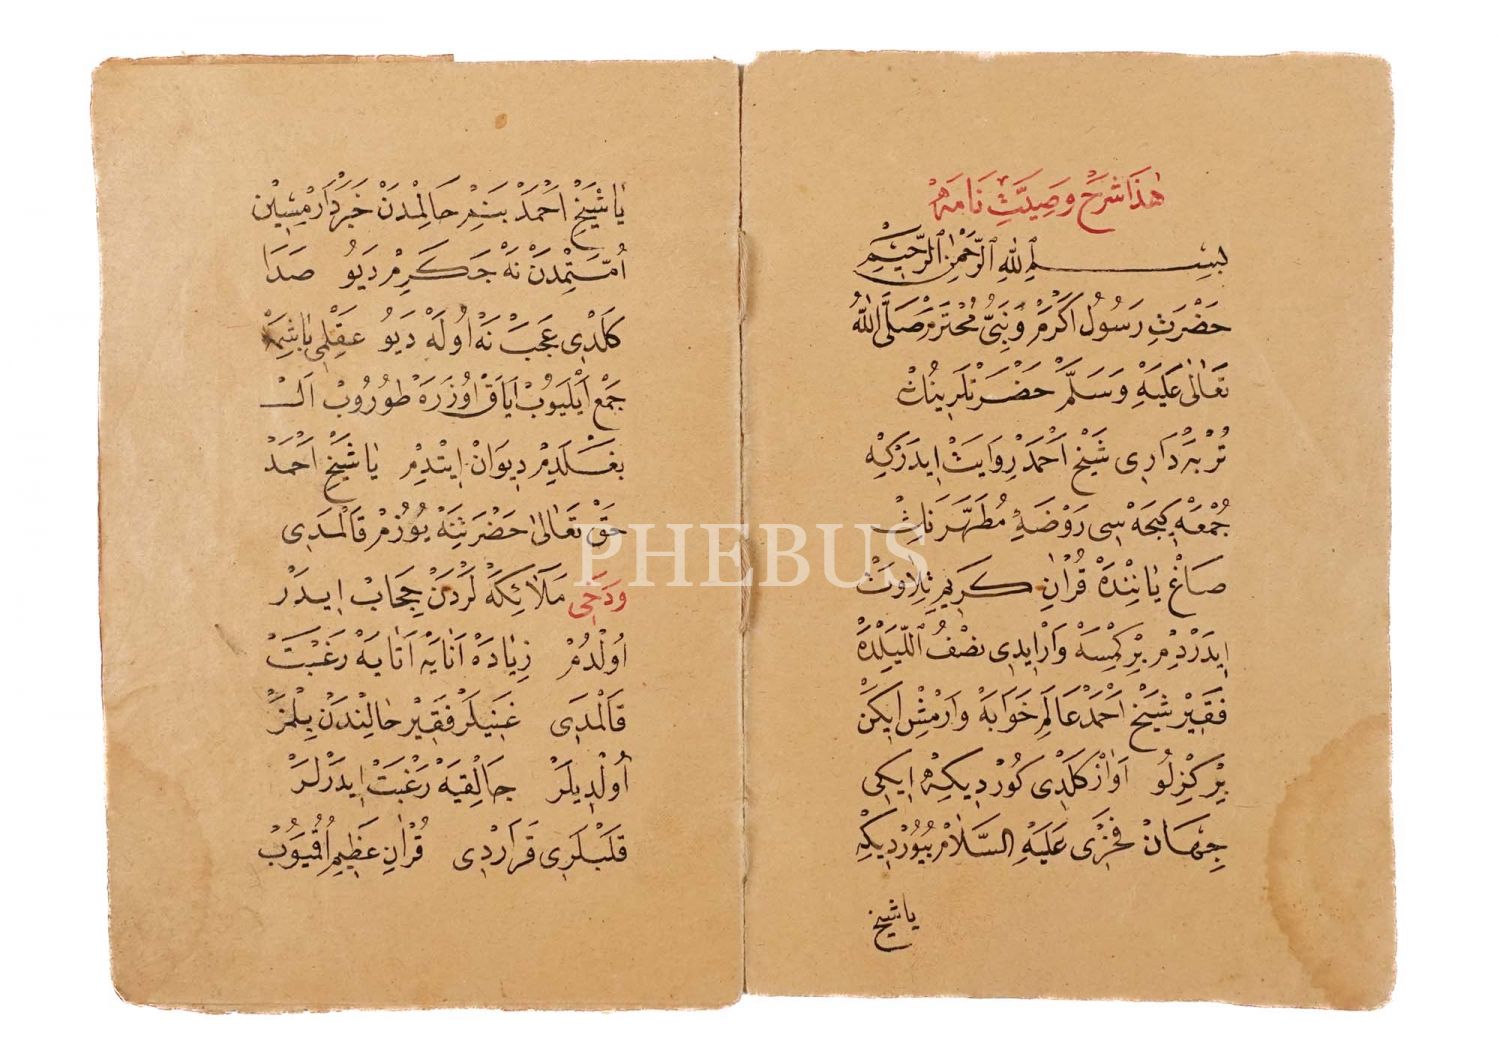 هٰذَا شَرْحِ وَصِيَّتْ نَامَهْ
بِسْمِ ٱللهِ ٱلرَّحْمٰنِ ٱلرَّحِيمِ
حَضْرَتِ رَسُولِ اَكْرَمْ وَنَبِيِّ مُحْتَرَمْ صَلَّى اللهُ
تَعَالٰى عَلَيْهِ وَسَلَّمْ حَضْرَتْلَرِينُكْ
تُرْبَهْدَارِى شَيْخْ اَحْمَدْ رِوَايَتْ اِيدَرْكِهْ
جُمْعَهْ كِيجَهْسِى رَوْضَهٔ مُطَهَّرَنِكْ
صَاغْ يَانِنْدَهْ قُرْاٰنِ كَرِيمِ تِلَاوَتْ
اِيدَرْدِمْ بِرْ كِمْسَهْ وَارْايدِى نِصْفُ اللَّيْلِدَهْ
فَقِيرْ شَيْخْ اَحْمَدْ عَالَمِ خَوَابَهْ وَارْمِشْ اِيكَنْ
بِرْ كِزْلُو اَوَازْ كَلْدِى كُورْدِيكِهْ اِيكِى
جِهَانْ فَخْرِى عَلَيْهِ السَّلَامْ بُيُورْدِيكِهْ
يا شيخ
يَا شَيْخْ اَحْمَدْ بَنِمْ حَالِمْدَنْ خَبَرْدَارْمِسِينْ
اُمَّتِمْدَنْ نَهْ چَكَرِمْ دَيُو صَدَا
كَلْدِى عَجَبْ نَهْ اُولَهْ دَيُو عَقِلْمِى بَاشِمَهْ
جَمْعْ اَيْلَيُوبْ اَيَاقْ اُوزَرَهْ طُورُوبْ اَلْ
بَغْلَدِمْ دِيوَانْ اِيتْدِمْ يَا شَيْخْ اَحْمَدْ
حَقْ تَعَالٰى حَضْرَتِنَهْ يُوزُمْ قَالْمَدِى
وَدَخِى مَلَائِكَهْ لَرْدَنْ حِجَابْ اِيدَرْ
اُولْدُمْ زِيَادَهْ اَنَايَهْ اَتَايَهْ رَغْبَتْ
قَالْمَدِى غَنِيلَرْ فَقِيرْ حَالِنْدَنْ بِلْمَزْ
اُولْدِيلَرْ جَالِقِيَهْ رَغْبَتْ اِيدَرْلَرْ
قَلْبْلَرِى قَرَارْدِى قُرْاٰنِ عَظِيمْ اُقُيُوبْ
PHEBUS